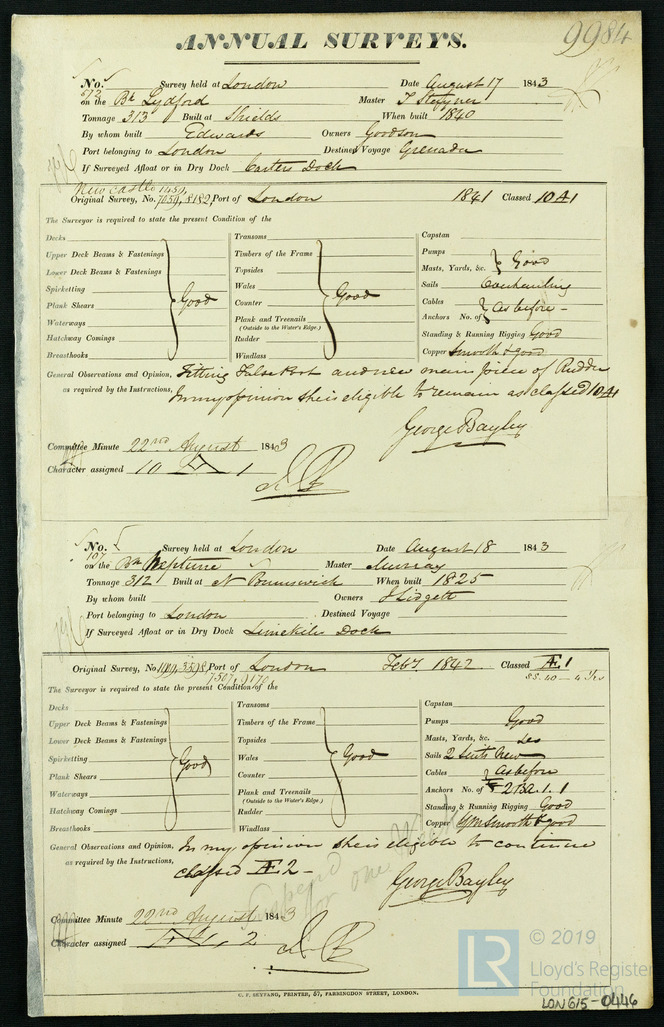 ANNUAL SURVEYS.
9984
No. 572 Survey held at London Date August 17 1843
on the Bk Lydford Master
Tonnage 313 Built at Shields When built 1840
By whom built Edwards Owners Goodson
Port belonging to London Destined Voyage Grenada
If Surveyed Afloat or in Dry Dock Carters Dock
Newcastle 1459,
Original Survey, No. 7054, 8182, Port of London 1841 Classed 10 A 1
The Surveyor is required to state the present Condition of the
Decks
Upper Deck Beams & Fastenings
Lower Deck Beams & Fastenings
Spirketting
Plank Shears
Waterways
Hatchway Comings
Breasthooks
Good
Transoms
Timbers of the Frame
Topsides
Wales
Counter
Plank and Treenails
(Outside to the Water's Edge.)
Rudder
Windlass
Good
Capstan
Pumps
Masts, Yards, &c. Good
Sails Overhauling
Cables
Anchors No. of As before -
Standing & Running Rigging Good
Copper Smooth & good
General Observations and Opinion, Fitting False Post and new main piece of Rudder
as required by the Instructions, In my opinion she is eligible to remain as classed 10 A 1
George Bayley
Committee Minute 22nd August 1843
Character assigned 10 A 1
No. 107 Survey held at London Date August 18 1843
on the Bn Neptune Master Murray
Tonnage 312 Built at N Brunswick When built 1825
By whom built Owners J Lidgett
Port belonging to London Destined Voyage
If Surveyed Afloat or in Dry Dock Limekiln Dock
Original Survey, No. Port of London Feby. 1842 Classed Æ 1
7507, 9170, SS. 40 - 4 Yrs
The Surveyor is required to state the present Condition of the
Decks
Upper Deck Beams & Fastenings
Lower Deck Beams & Fastenings
Spirketting
Plank Shears
Waterways
Hatchway Comings
Breasthooks
Good
Transoms
Timbers of the Frame
Topsides
Wales
Counter
Plank and Treenails
(Outside to the Water's Edge.)
Rudder
Windlass
Good
Capstan
Pumps Good
Masts, Yards, &c. Do
Sails 2 Suits New
Cables As before
Anchors No. of 2 B 2. 1. 1
Standing & Running Rigging Good
Copper Ym smooth & good
General Observations and Opinion, In my opinion she is eligible to continue
as required by the Instructions, classed Æ 2 -
Suspend for one
George Bayley
Committee Minute 22nd August 1843
Character assigned Æ 1, 2
C. F. SEYFANG, PRINTER, 57, FARRINGDON STREET, LONDON.
LR © 2019
Lloyd's Register
Foundation
LON615-0446